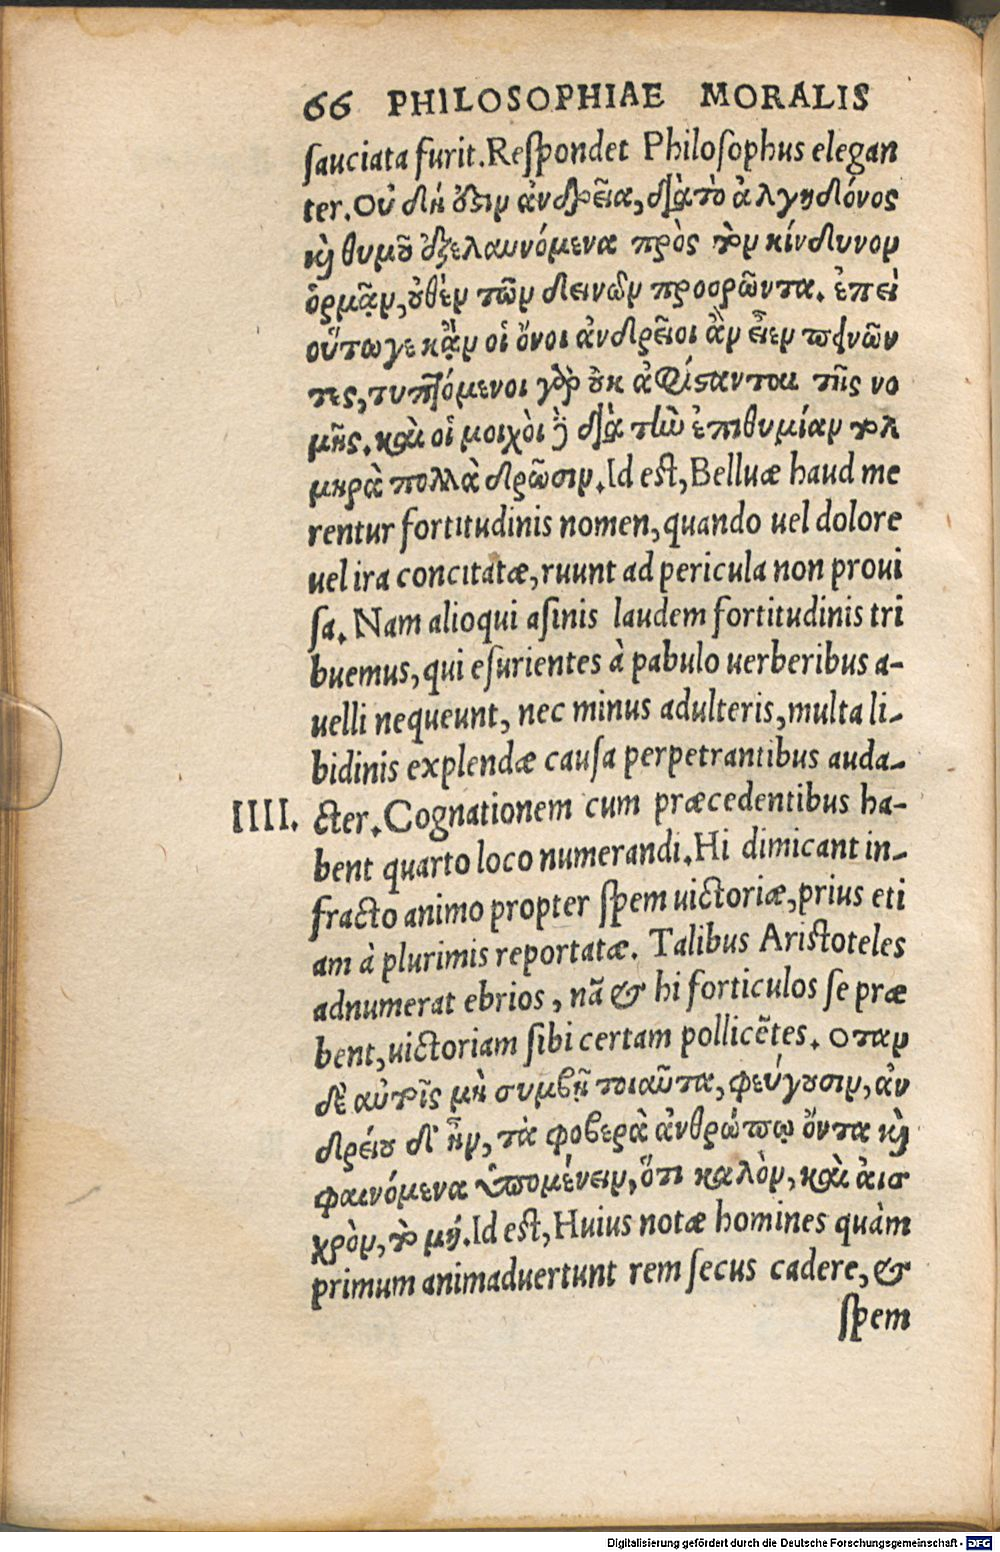 66 PHILOSOPHIAE MORALIS
sauciata furit. Respondet Philosophus elegan
ter. Οὐ δή ὅξιν ἀνδρεῖα, διὰ τὸ ἀλγηδόνος
κὴ θυμοῦ ἐξελαυνόμενα πρὸς τὸν κίνδυνον
ὁρμᾷν, οὐθὲν τῶν δεινῶν προορῶντα. ἐπεὶ
οὕτωγε κᾂν οἱ ὄνοι ἀνδρεῖοι ἂν εἶεν πεινῶν
τες, τυπτόμενοι γὸρ οὐκ ἀφίσανται τῆς νο
μῆς. καὶ οἱ μοιχὸι ὃ διὰ τὴν ἐπιθυμίαν τολ
μηρὰ πολλὰ δρῶσιν. Id est, Belluæ haud me
rentur fortitudinis nomen, quando uel dolore
uel ira concitatæ, ruunt ad pericula non proui
sa. Nam alioqui asinis laudem fortitudinis tri
buemus, qui esurientes à pabulo uerberibus a-
uelli nequeunt, nec minus adulteris, multa li-
bidinis explendæ causa perpetrantibus auda-
IIII. cter. Cognationem cum præcedentibus ha-
bent quarto loco numerandi. Hi dimicant in-
fracto animo propter spem uictoriæ, prius eti
am à plurimis reportatæ. Talibus Aristoteles
adnumerat ebrios, nã & hi forticulos se præ
bent, uictoriam sibi certam pollicẽtes. Οταν
δὲ αὐτοῖς μὴ συμβῇ τοιαῦτα, φεύγουσιν, ἀν
δρείου δ' ἦν, τὰ φοβερὰ ἀνθρώπῳ ὄντα κὴ
φαινόμενα ὑπομένειν, ὅτι καλὸν, καὶ ἀισ
χρὸν, τὸ μή. Id est, Huius notæ homines quàm
primum animaduertunt rem secus cadere, &
spem
Digitalisierung gefördert durch die Deutsche Forschungsgemeinschaft - DFG